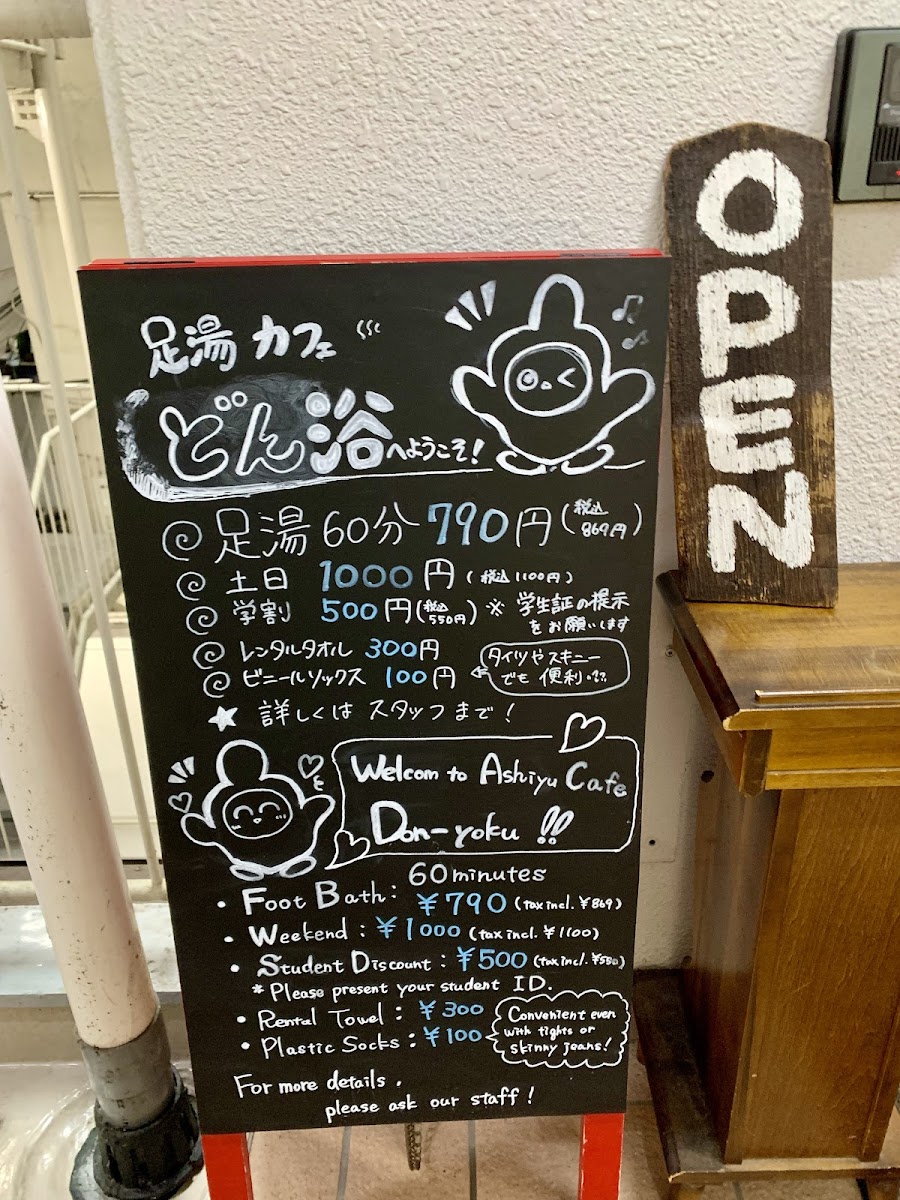 足湯カフェ
どん浴へようこそ!
足湯60分 790円(税込869円)
土日 1000円(税込1100円)
学割 500円(税込550円)※学生証の提示
をお願いします
レンタルタオル 300円
ビニールソックス 100円
タイツやスキニー
でも便利.??
☆詳しくはスタッフまで!
Welcom to Ashiyu Cafe
Don-yoku!!
60minutes
・Foot Bath: ¥790 (tax incl. ¥869)
・Weekend: ¥1000 (tax incl. ¥1100)
・Student Discount: ¥500 (tax incl. ¥550)
*Please present your student ID.
・Rental Towel: ¥300
・Plastic Socks: ¥100
Convenient even
with tights or
skinny jeans!
For more details,
please ask our staff!
OPEN